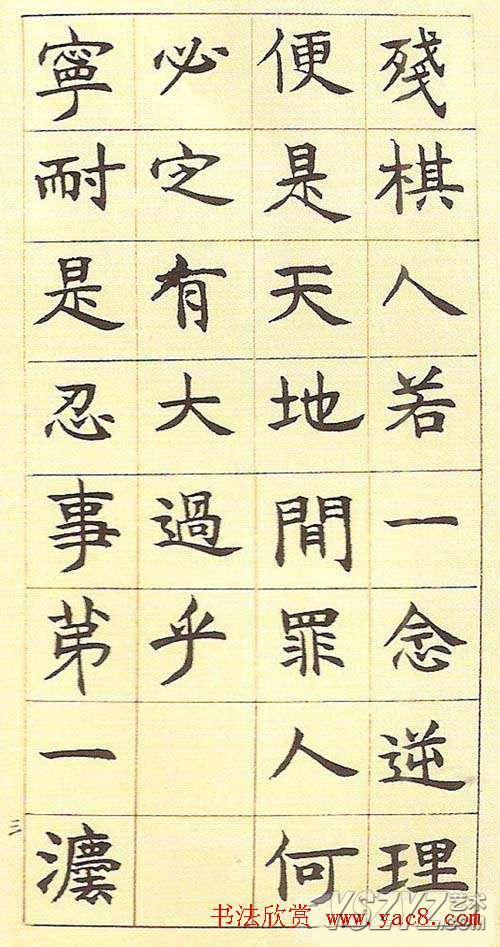 殘棋人若一念逆理
便是天地間罪人何
必定有大過乎
寧耐是忍事苐一灋
三
书法欣赏 www.yac8.com